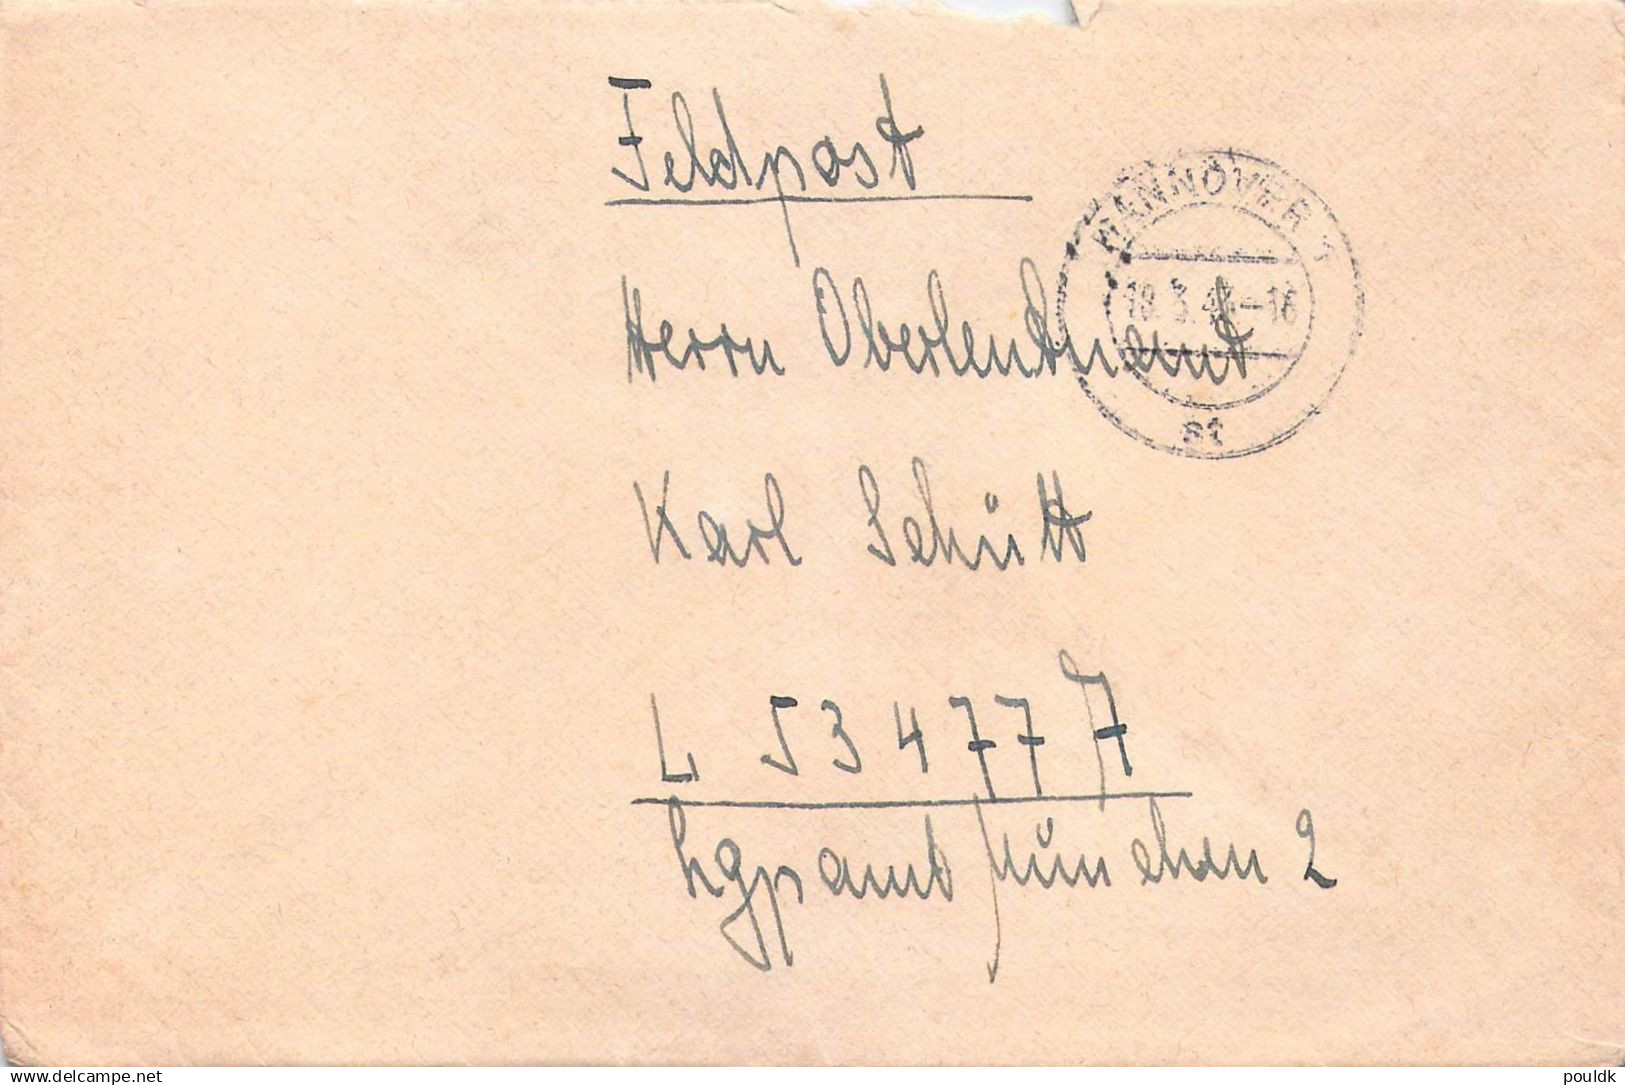 Feldpost
HANNOVER 1
18.3.44-16
st
Herrn Oberleutnant
Karl Schütt
L 53477 A
Lgpamt München 2
www.delcampe.net
pouldk